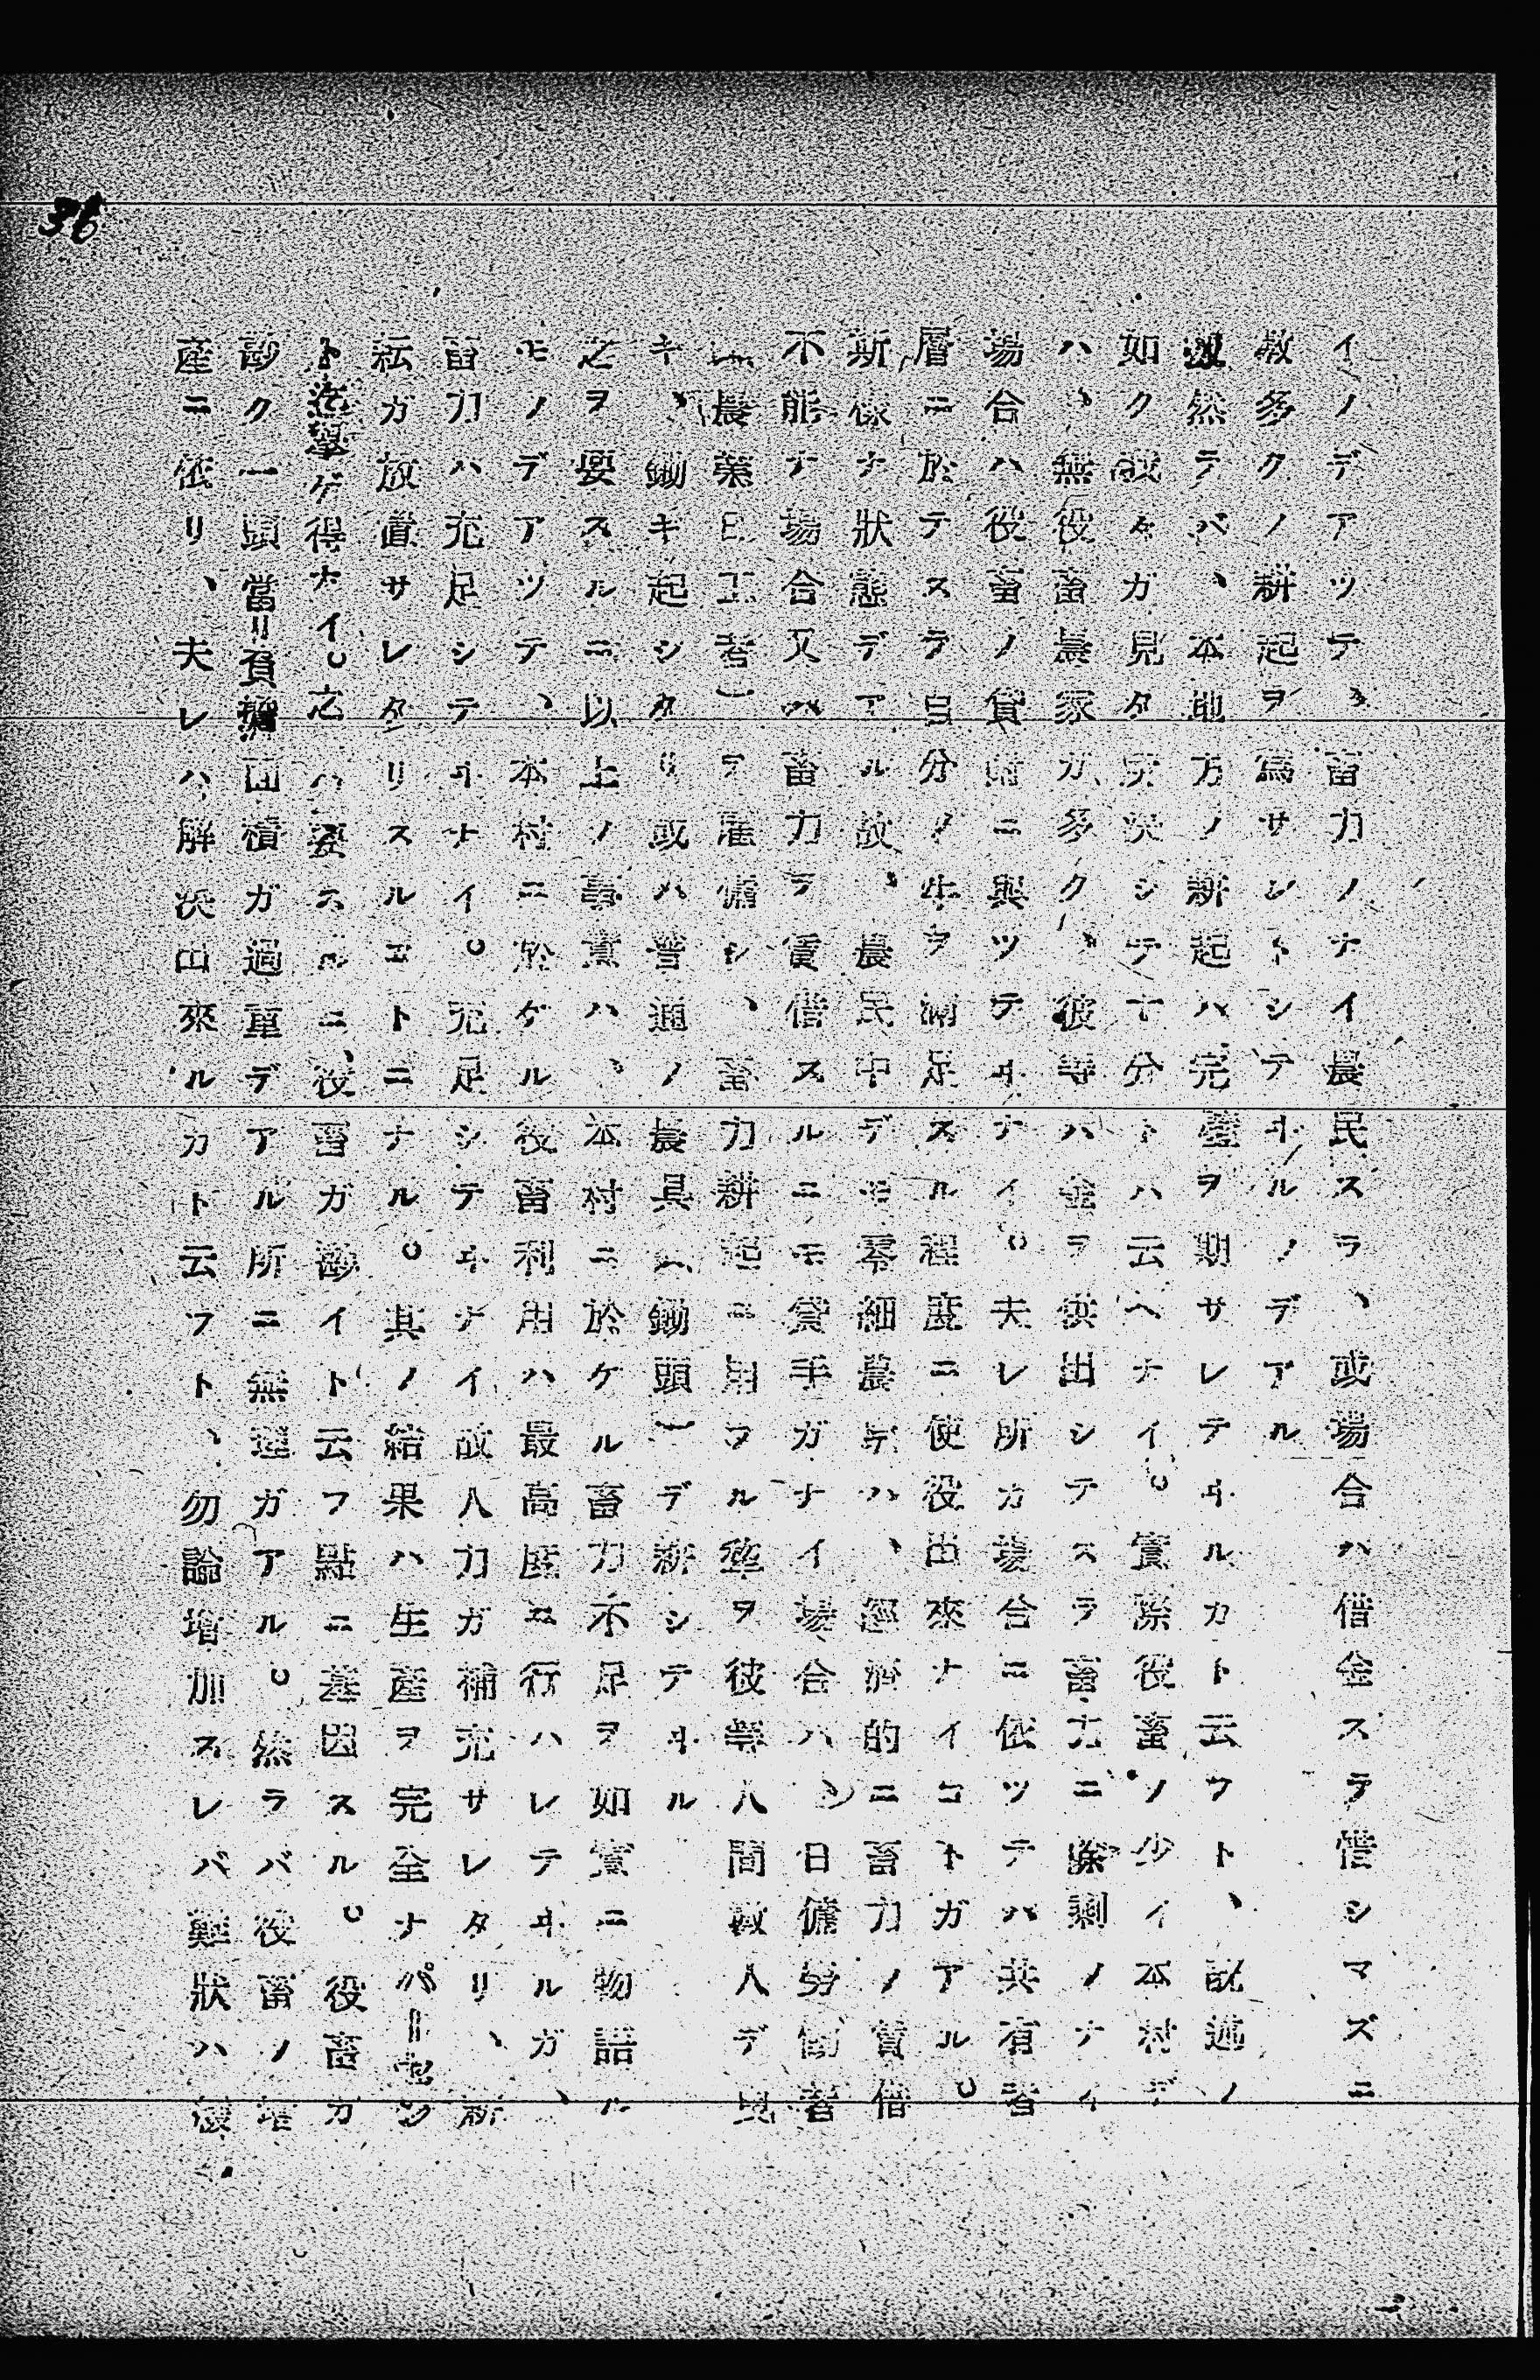 36
イノデアツテ、畜力ノナイ農民スラ、或場合ハ借金ステ借シマズニ
数多クノ耕起ヲ為サントシテヰルノデアル
然ラバ、本地方ノ耕起ハ完璧ヲ期サレテヰルカト云フト、既述ノ
如ク我々ガ見タ天災シテ十分トハ云ヘナイ。実際役畜ノ少イ本村デ
ハ、無役畜農家ガ多ク、彼等ハ金ヲ供出シテスラ畜力ニ余剰ノナイ
場合ハ役畜ノ賃借ニ與ツテヰナイ。夫レ所カ場合ニ依ツテハ共有者
層ニ於テスラ自分ノ牛ヲ満足スル程度ニ使役出来ナイコトガアル。
斯様ナ狀態デアル故、農民中デモ零細農等ハ、経済的ニ畜力ノ賃借
不能ナ場合又ハ畜力ヲ賃借スルニモ貸手ガナイ場合ハ、日傭労働者
（農業日工者）ヲ雇傭シ、畜力耕起ニ用フル犂ヲ彼等人間数人デ曳
キ、鋤キ起シタリ或ハ普通ノ農具（鋤頭）デ耕シテヰル
之ヲ要スルニ以上ノ事実ハ、本村ニ於ケル畜力不足ヲ如実ニ物語ル
モノデアツテ、本村ニ於ケル役畜利用ハ最高度ニ行ハレテヰルガ、
畜力ハ充足シテヰナイ。充足シテヰナイ故人力ガ補充サレタリ、耕
耘ガ放置サレタリスルコトニナル。其ノ結果ハ生産ヲ完全ナパーセン
ト迄挙ゲ得ナイ。之ハ要スルニ、役畜ガ尠イト云フ點ニ基因スル。役畜ガ
尠ク一頭當リ負擔面積ガ過重デアル所ニ無理ガアル。然ラバ役畜ノ増
産ニ依リ、夫レハ解決出來ルカト云フト、勿論増加スレバ難狀ハ緩